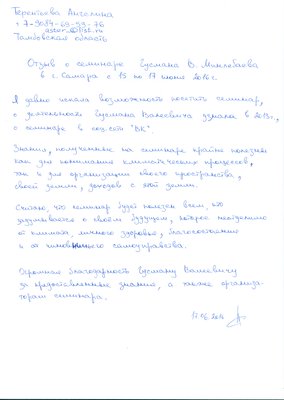 Терентьева Ангелина
+ 7-9084-69-99-76
Тамбовская область
Отзыв о семинаре Гусмана В. Минлебаева
в г. Самара с 15 по 17 июня 2016 г.
Я давно искала возможность посетить семинар,
о деятельности Гусмана Валеевича узнала в 2015 г.,
о семинаре в соц. сети "ВК".
Знания, полученные на семинаре крайне полезны
как для понимания климатических процессов,
так и для организации своего пространства,
своей земли, доходов с этой земли.
Считаю, что семинар будет полезен всем, кто
задумывается о своём будущем, которое неотделимо
от климата, личного здоровья, благосостояния
и от чиновничьего самодурства.
Огромная благодарность Гусману Валеевичу
за предоставленные знания, а также организа-
торам семинара.
17.06.2016